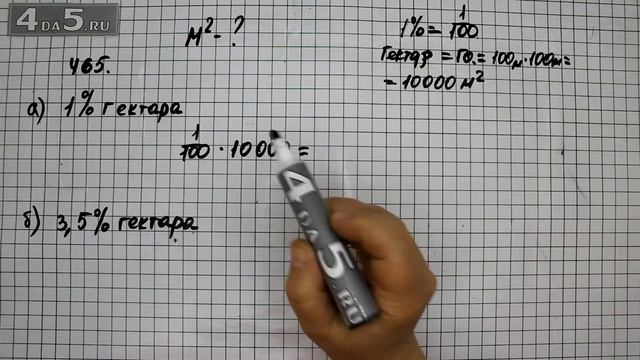 4DA5.RU
м² - ?
465.
1% = 1/100
Гектар = Га = 100м · 100м =
= 10000 м²
а) 1% гектара
1/100 · 10000 =
б) 3,5% гектара
4DA5.RU